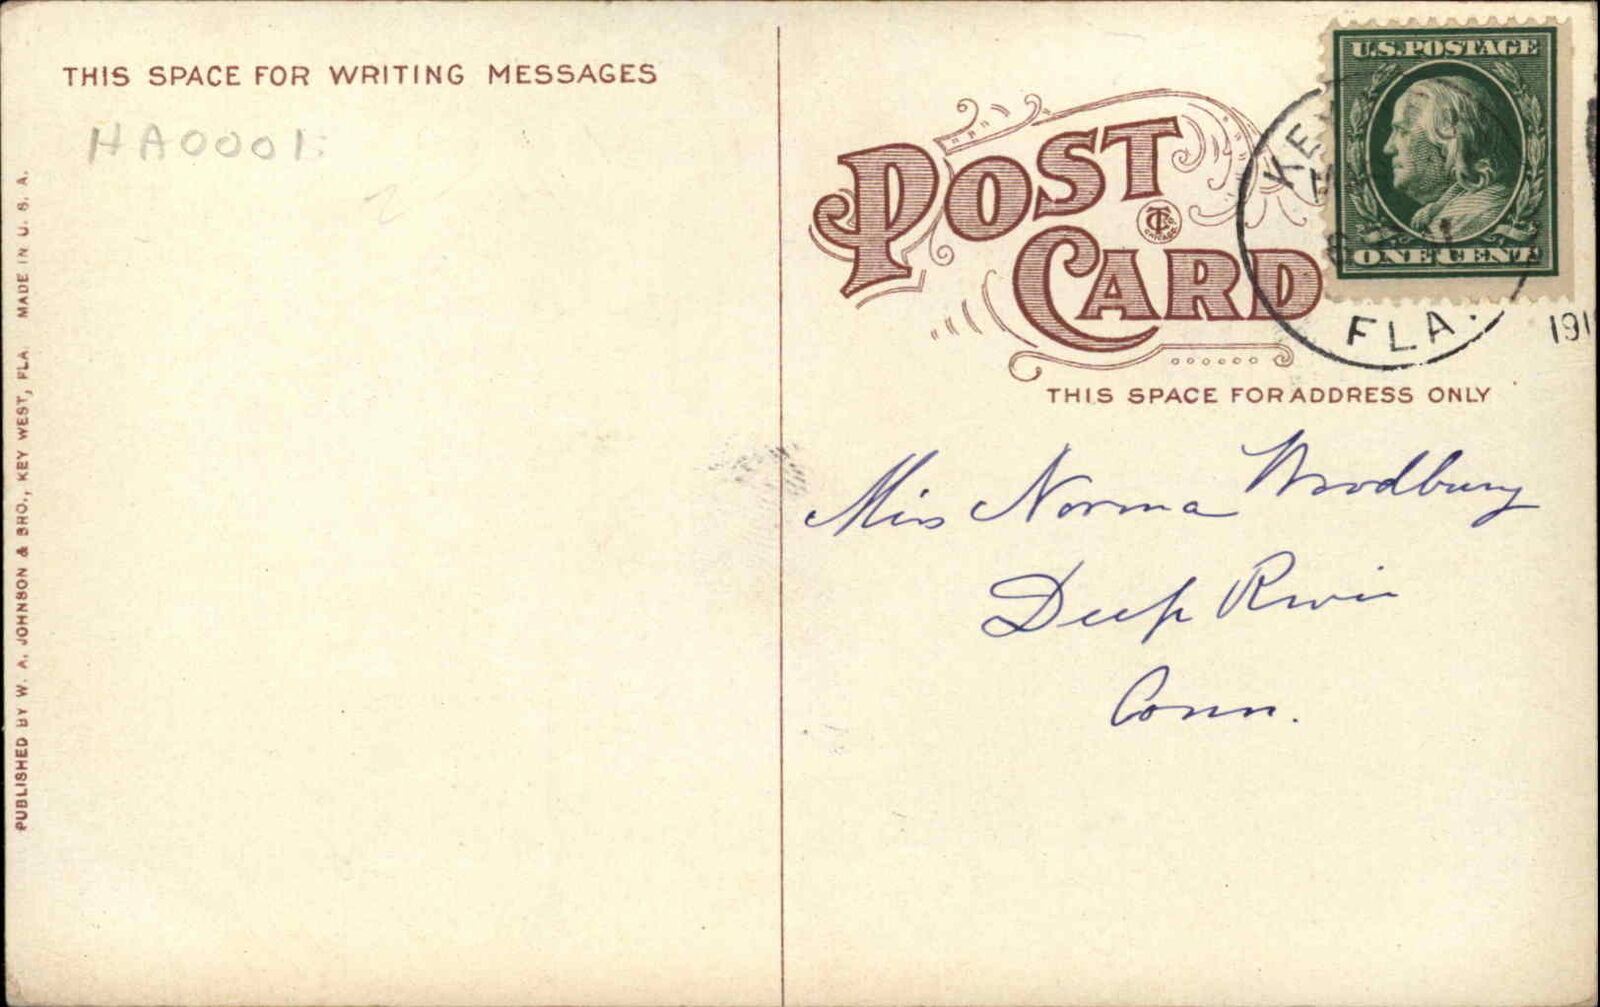 THIS SPACE FOR WRITING MESSAGES
HA0001
PUBLISHED BY W. A. JOHNSON & BRO., KEY WEST, FLA. MADE IN U. S. A.
POST CARD
U.S. POSTAGE
ONE CENT
FLA.
191
THIS SPACE FOR ADDRESS ONLY
Miss Norma Woodbury
Deep River
Conn.